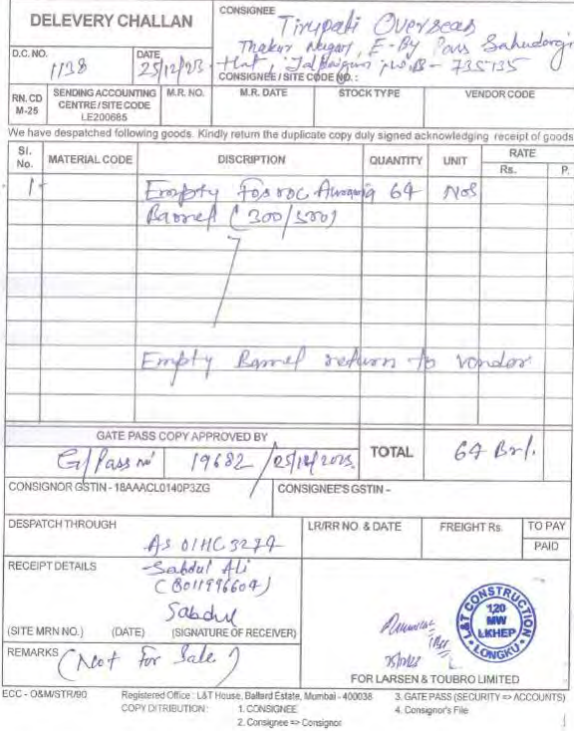 DELEVERY CHALLAN
CONSIGNEE
Tirupati Overseas
Thakur Nagar, E-By Pass Sahudangi
Hat, Jalpaiguri, W.B - 735135
CONSIGNEE / SITE CODE NO. :
D.C. NO. 1138
DATE 25/12/23
RN. CD M-25
SENDING ACCOUNTING CENTRE / SITE CODE LE200685
M.R. NO.
M.R. DATE
STOCK TYPE
VENDOR CODE
We have despatched following goods. Kindly return the duplicate copy duly signed acknowledging receipt of goods
Sl. No. MATERIAL CODE DISCRIPTION QUANTITY UNIT RATE Rs. P.
1- Empty Fosroc 64 Nos
Barrel (300/500)
Empty Barrel return to vendor
GATE PASS COPY APPROVED BY
G/Pass no 19682 / 25/12/2023
TOTAL 64 Brl.
CONSIGNOR GSTIN - 18AAACL0140P3ZG
CONSIGNEE'S GSTIN -
DESPATCH THROUGH
AS 01HC 3274
LR/RR NO. & DATE
FREIGHT Rs.
TO PAY
PAID
RECEIPT DETAILS
Sabdul Ali
(8011996604)
Sabdul
(SITE MRN NO.) (DATE) (SIGNATURE OF RECEIVER)
REMARKS (Not For Sale)
L&T CONSTRUCTION
120
MW
LKHEP
LONGKU
FOR LARSEN & TOUBRO LIMITED
ECC - O&M/STR/90
Registered Office : L&T House, Ballard Estate, Mumbai - 400038
COPY DITRIBUTION : 1. CONSIGNEE
2. Consignee => Consignor
3. GATE PASS (SECURITY => ACCOUNTS)
4. Consignor's File